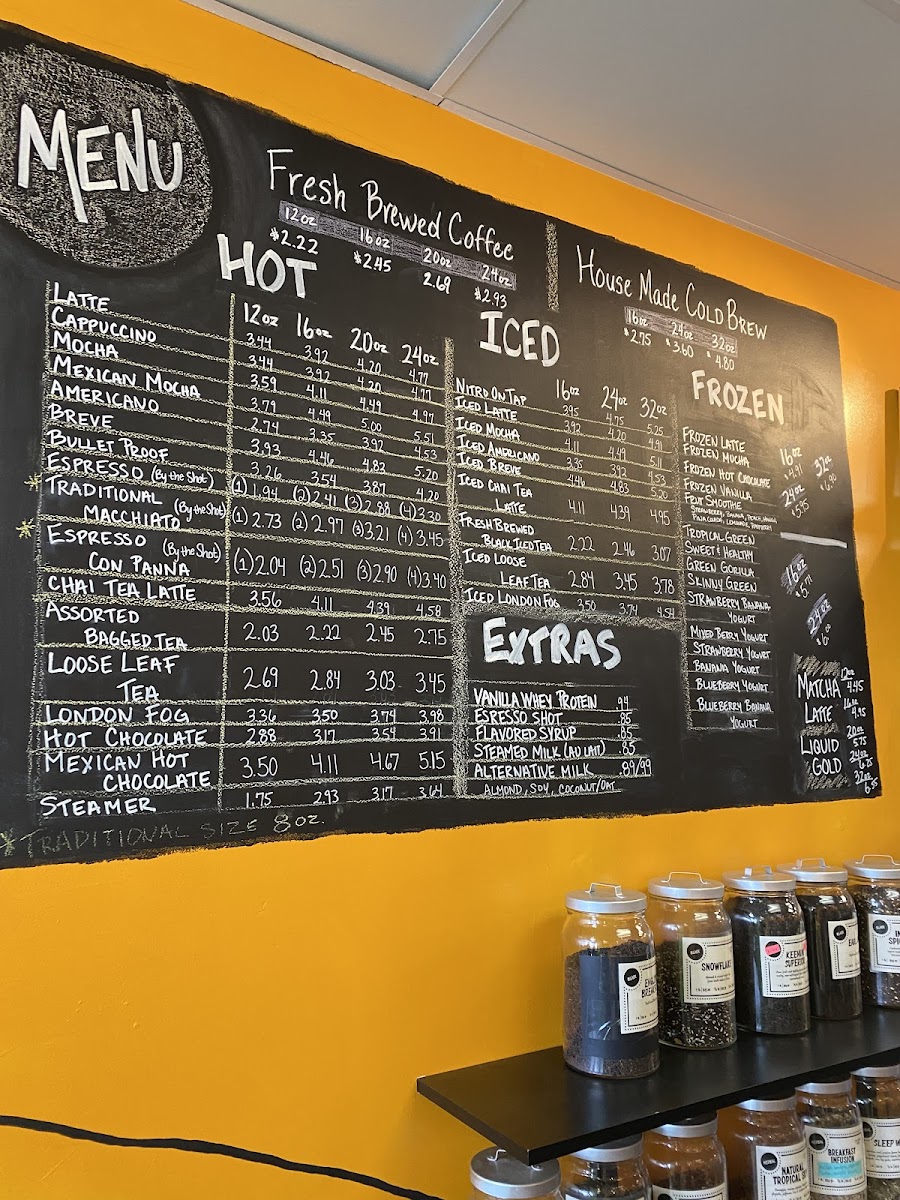 MENU
Fresh Brewed Coffee
12oz 16oz 20oz 24oz
$2.22 $2.45 2.69 $2.93
House Made Cold Brew
16oz 24oz 32oz
$2.75 $3.60 $4.80
HOT
12oz 16oz 20oz 24oz
LATTE 3.44 3.92 4.20 4.77
CAPPUCCINO 3.44 3.92 4.20 4.77
MOCHA 3.59 4.11 4.49 4.97
MEXICAN MOCHA 3.79 4.49 5.00 5.51
AMERICANO 2.74 3.35 3.92 4.53
BREVE 3.93 4.46 4.83 5.20
BULLET PROOF 3.26 3.54 3.87 4.20
ESPRESSO (By the Shot) (1) 1.94 (2) 2.41 (3) 2.88 (4) 3.30
TRADITIONAL
MACCHIATO (By the Shot) (1) 2.73 (2) 2.97 (3) 3.21 (4) 3.45
ESPRESSO (By the Shot)
CON PANNA (1) 2.04 (2) 2.51 (3) 2.90 (4) 3.40
CHAI TEA LATTE 3.56 4.11 4.39 4.58
ASSORTED
BAGGED TEA 2.03 2.22 2.45 2.75
LOOSE LEAF
TEA 2.69 2.84 3.03 3.45
LONDON FOG 3.36 3.50 3.74 3.98
HOT CHOCOLATE 2.88 3.17 3.54 3.91
MEXICAN HOT
CHOCOLATE 3.50 4.11 4.67 5.15
STEAMER 1.75 2.93 3.17 3.64
*TRADITIONAL SIZE 8oz.
ICED
16oz 24oz 32oz
NITRO ON TAP 3.95 4.75 5.25
ICED LATTE 3.92 4.20 4.91
ICED MOCHA 4.11 4.49 5.11
ICED AMERICANO 3.35 3.92 4.53
ICED BREVE 4.46 4.83 5.20
ICED CHAI TEA
LATTE 4.11 4.39 4.95
FRESH BREWED
BLACK ICED TEA 2.22 2.46 3.07
ICED LOOSE
LEAF TEA 2.84 3.45 3.78
ICED LONDON FOG 3.50 3.74 4.54
EXTRAS
VANILLA WHEY PROTEIN .94
ESPRESSO SHOT .85
FLAVORED SYRUP .85
STEAMED MILK (AU LAIT) .85
ALTERNATIVE MILK .89/.99
ALMOND, SOY, COCONUT/OAT
FROZEN
FROZEN LATTE
FROZEN MOCHA
FROZEN HOT CHOCOLATE
FROZEN VANILLA
FRUIT SMOOTHIE
TROPICAL GREEN
SWEET & HEALTHY
GREEN GORILLA
SKINNY GREEN
STRAWBERRY BANANA
YOGURT
MIXED BERRY YOGURT
STRAWBERRY YOGURT
BANANA YOGURT
BLUEBERRY YOGURT
BLUEBERRY BANANA
YOGURT
16oz
$4.91
24oz
$5.75
32oz
$6.90
16oz
$5.71
24oz
MATCHA
LATTE
LIQUID
GOLD
12oz
4.45
16oz
4.95
20oz
5.75
24oz
6.25
32oz
SNOWFLAKE
KEEMUN
SUPERIOR
NATURAL
TROPICAL
BREAKFAST
INFUSION
SLEEP